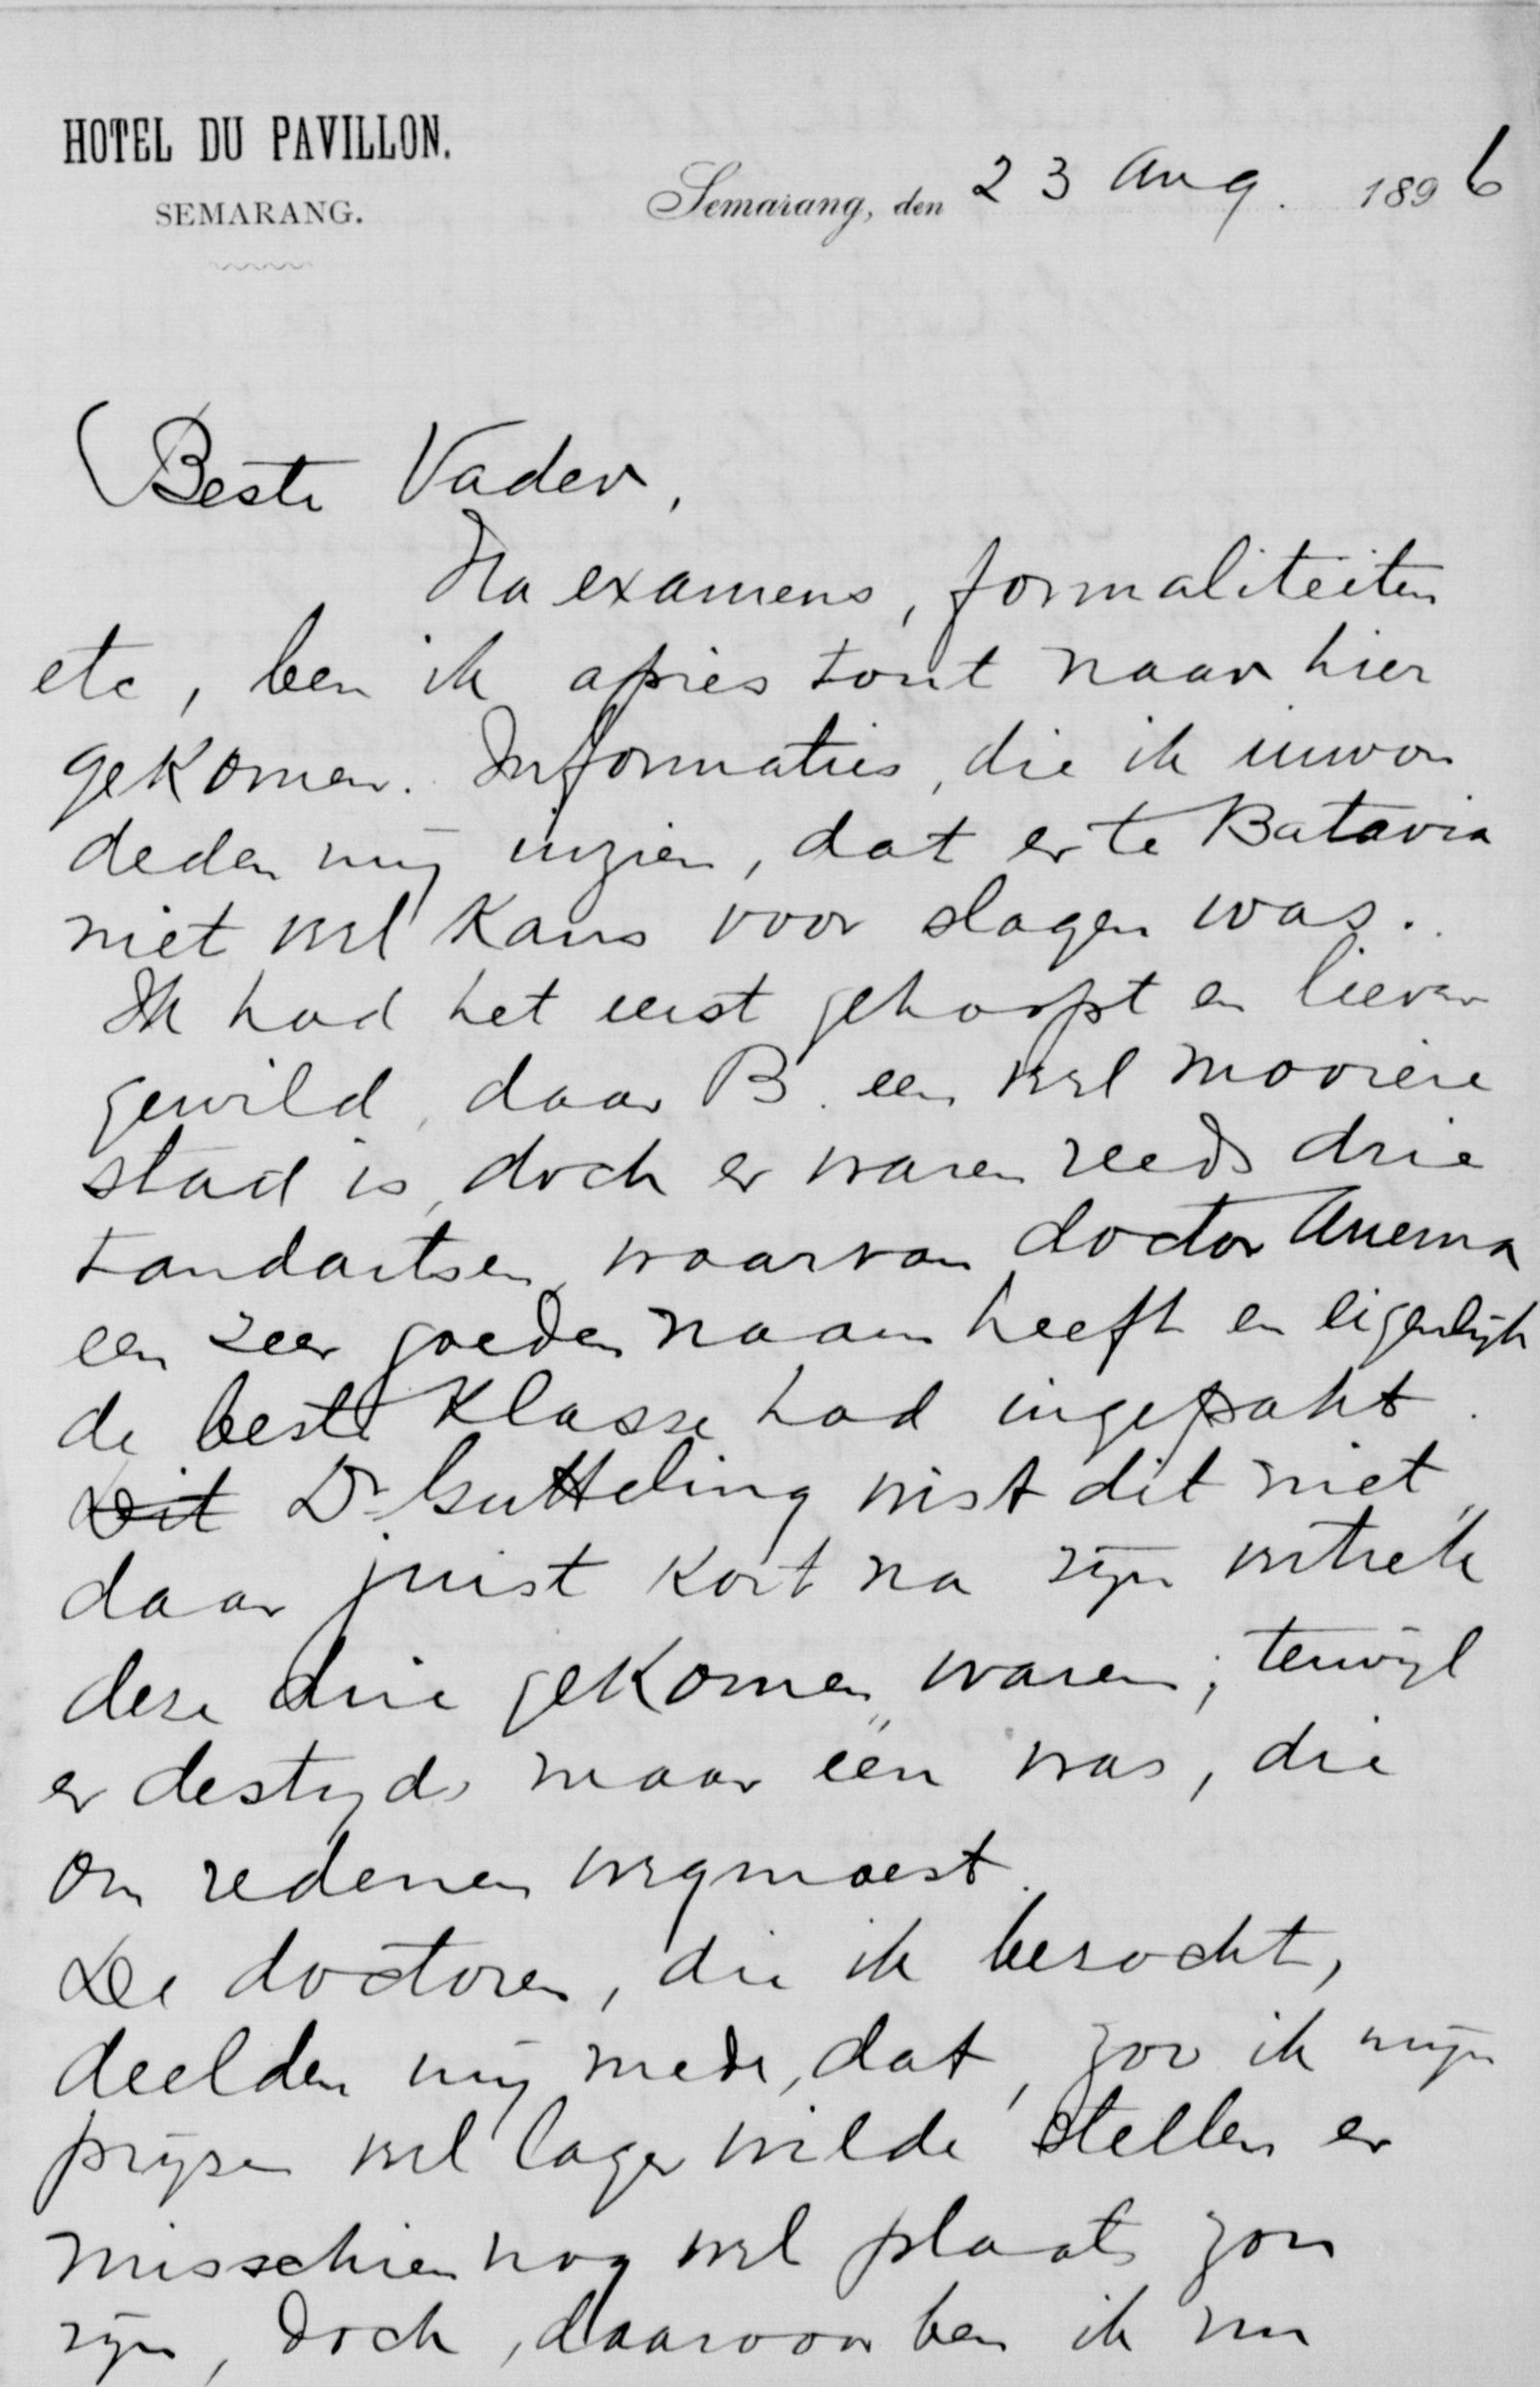 HOTEL DU PAVILLON.
SEMARANG.
Semarang, den 23 Aug. 1896
Beste Vader,
Na examens, formaliteiten
etc, ben ik après tout naar hier
gekomen. Informaties, die ik inwon
deden mij inzien, dat er te Batavia
niet veel kans voor slagen was.
Ik had het eerst gehoopt en liever
gewild, daar B. een veel mooiere
stad is, doch er waren reeds drie
tandartsen, waarvan doctor Anema
een zeer goeden naam heeft en eigenlijk
de beste klasse had ingepakt.
Dit Dr Gutteling wist dit niet,
daar juist kort na zijn vertrek
deze drie gekomen waren; terwijl
er destijds maar één was, die
om redenen wegmoest.
De doctoren, die ik bezocht,
deelden mij mede, dat, zoo ik mijn
prijzen veel lager wilde stellen er
misschien nog wel plaats zou
zijn, doch, daarvoor ben ik nu